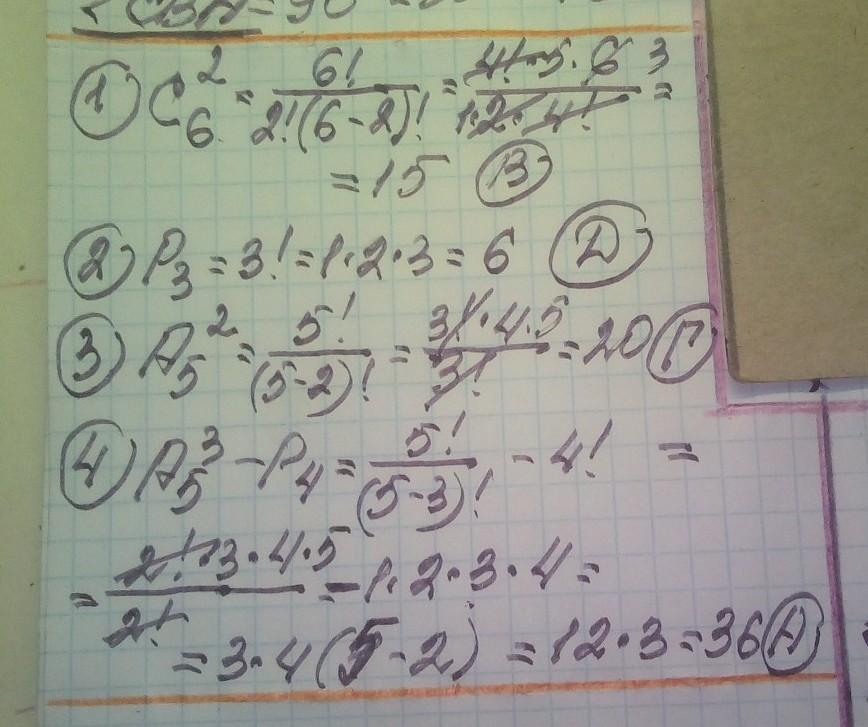 ① C₆² = 6!/2!(6-2)! = 4!·5·6 3/1·2·4! =
= 15 В
② P₃ = 3! = 1·2·3 = 6 Д
③ A₅² = 5!/(5-2)! = 3!·4·5/3! = 20 Г
④ A₅³ - P₄ = 5!/(5-3)! - 4! =
= 2!·3·4·5/2! - 1·2·3·4 =
= 3·4(5-2) = 12·3 = 36 А